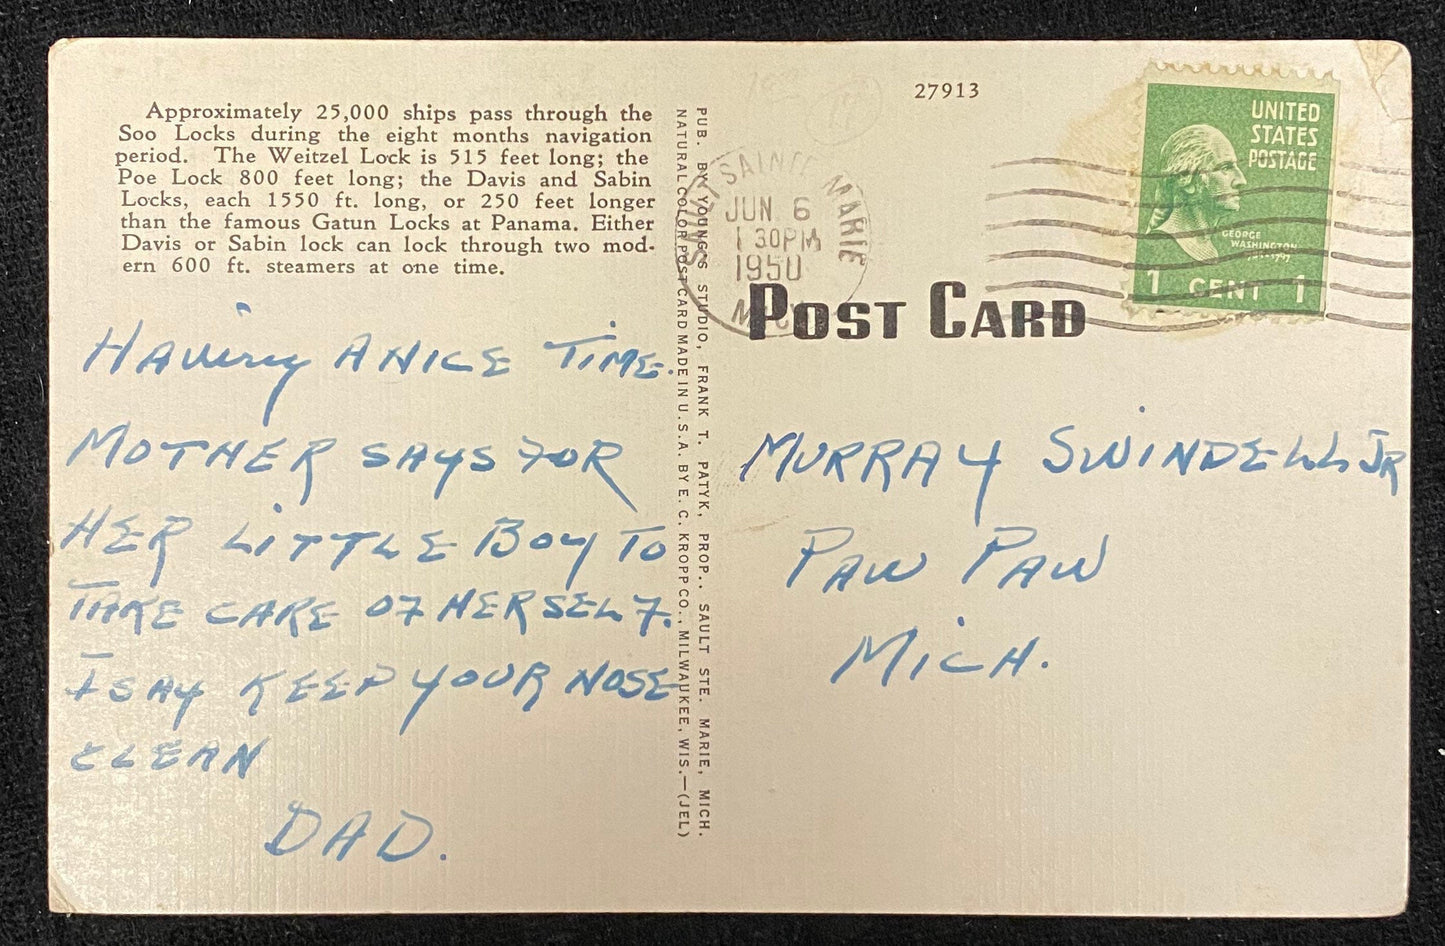 Approximately 25,000 ships pass through the
Soo Locks during the eight months navigation
period. The Weitzel Lock is 515 feet long; the
Poe Lock 800 feet long; the Davis and Sabin
Locks, each 1550 ft. long, or 250 feet longer
than the famous Gatun Locks at Panama. Either
Davis or Sabin lock can lock through two mod-
ern 600 ft. steamers at one time.
HAving A NICE TIME.
MOTHER SAYS FOR
HER LiTTLE BOY TO
TAKE CARE OF HERSELF.
I SAY KEEP YOUR NOSE
CLEAN
DAD.
PUB. BY YOUNG'S STUDIO, FRANK T. PATYK, PROP., SAULT STE. MARIE, MICH.
NATURAL COLOR POST CARD MADE IN U.S.A. BY E. C. KROPP CO., MILWAUKEE, WIS.—(JEL)
27913
SAULT SAINTE MARIE
JUN 6
1 30PM
1950
MICH
UNITED
STATES
POSTAGE
GEORGE
WASHINGTON
1 CENT 1
POST CARD
MURRAY SWINDELL JR
PAW PAW
MiCH.